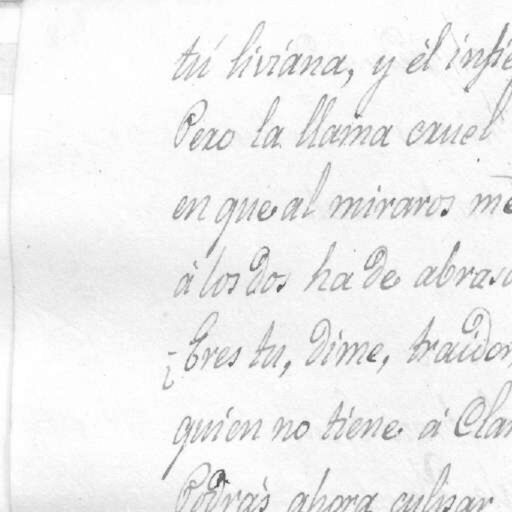 tú liviana, y él infie
Pero la llama cruel
en que al miraros me
á los dos ha de abrasa
¿Eres tu, dime, traidor,
quien no tiene á Clar
Podrás ahora culpar